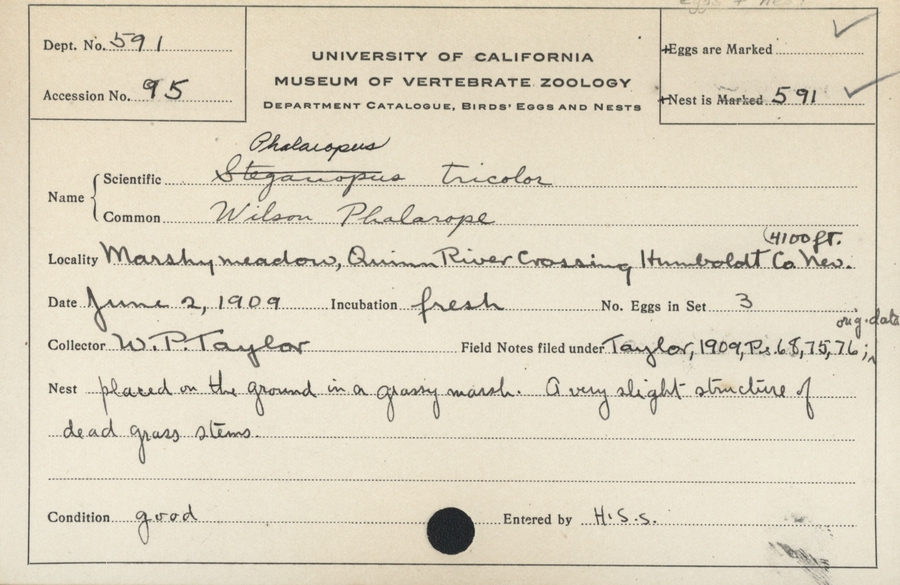 eggs + nest
Dept. No. 591
Accession No. 95
UNIVERSITY OF CALIFORNIA
MUSEUM OF VERTEBRATE ZOOLOGY
DEPARTMENT CATALOGUE, BIRDS' EGGS AND NESTS
Eggs are Marked
Nest is Marked 591
Phalaropus
Name
Scientific Steganopus tricolor
Common Wilson Phalarope
(4100 ft.
Locality Marshy meadow, Quinn River Crossing Humboldt Co Nev.
Date June 2, 1909 Incubation fresh No. Eggs in Set 3
orig. data
Collector W.P. Taylor Field Notes filed under Taylor, 1909, Ps. 68, 75, 76;
Nest placed on the ground in a grassy marsh. A very slight structure of
dead grass stems.
Condition good Entered by H.S.S.